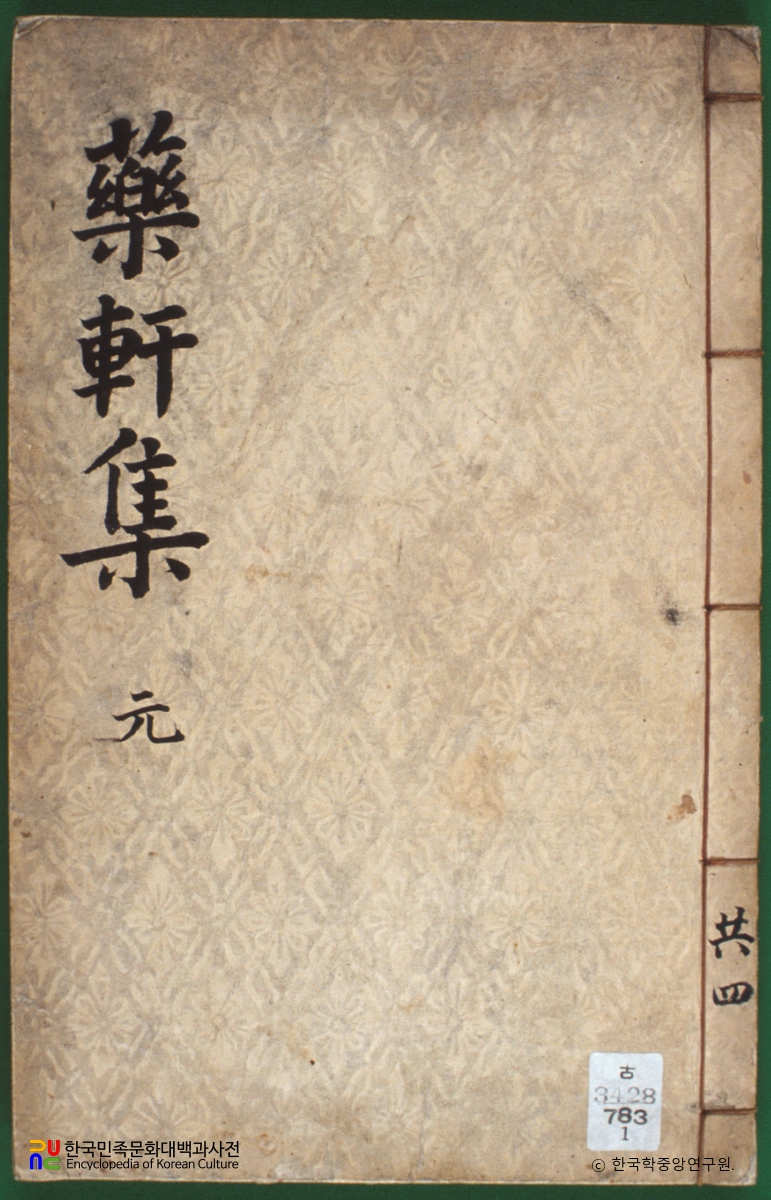 藥軒集
元
共四
古
3428
783
1
한국민족문화대백과사전
Encyclopedia of Korean Culture
© 한국학중앙연구원.